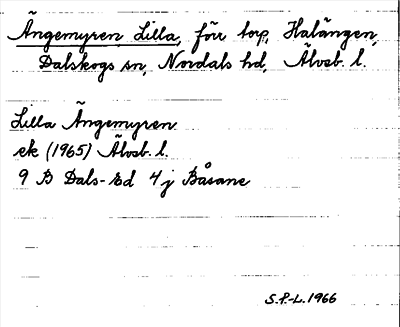 Ängemyren, Lilla, förr torp, Halängen,
Dalskogs sn, Nordals hd, Älvsb. l.
Lilla Ängemyren
ek (1965) Älvsb. l.
9 B Dals-Ed 4 j Båsane
S.P.-L. 1966